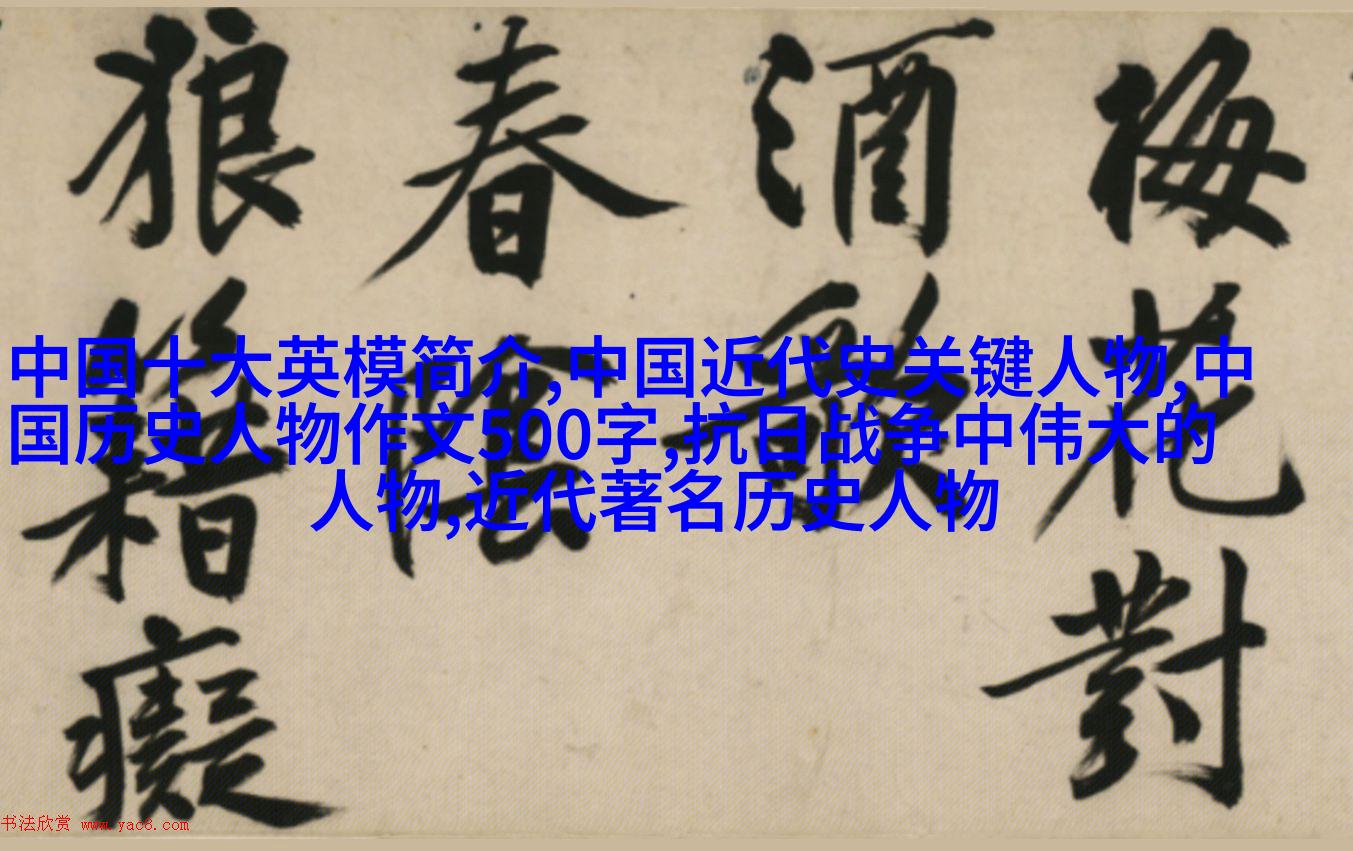 梅花對
酒
春
狼籍癡
中国十大英模简介,中国近代史关键人物,中
国历史人物作文500字,抗日战争中伟大的
人物,近代著名历史人物
书法欣赏 www.yac8.com